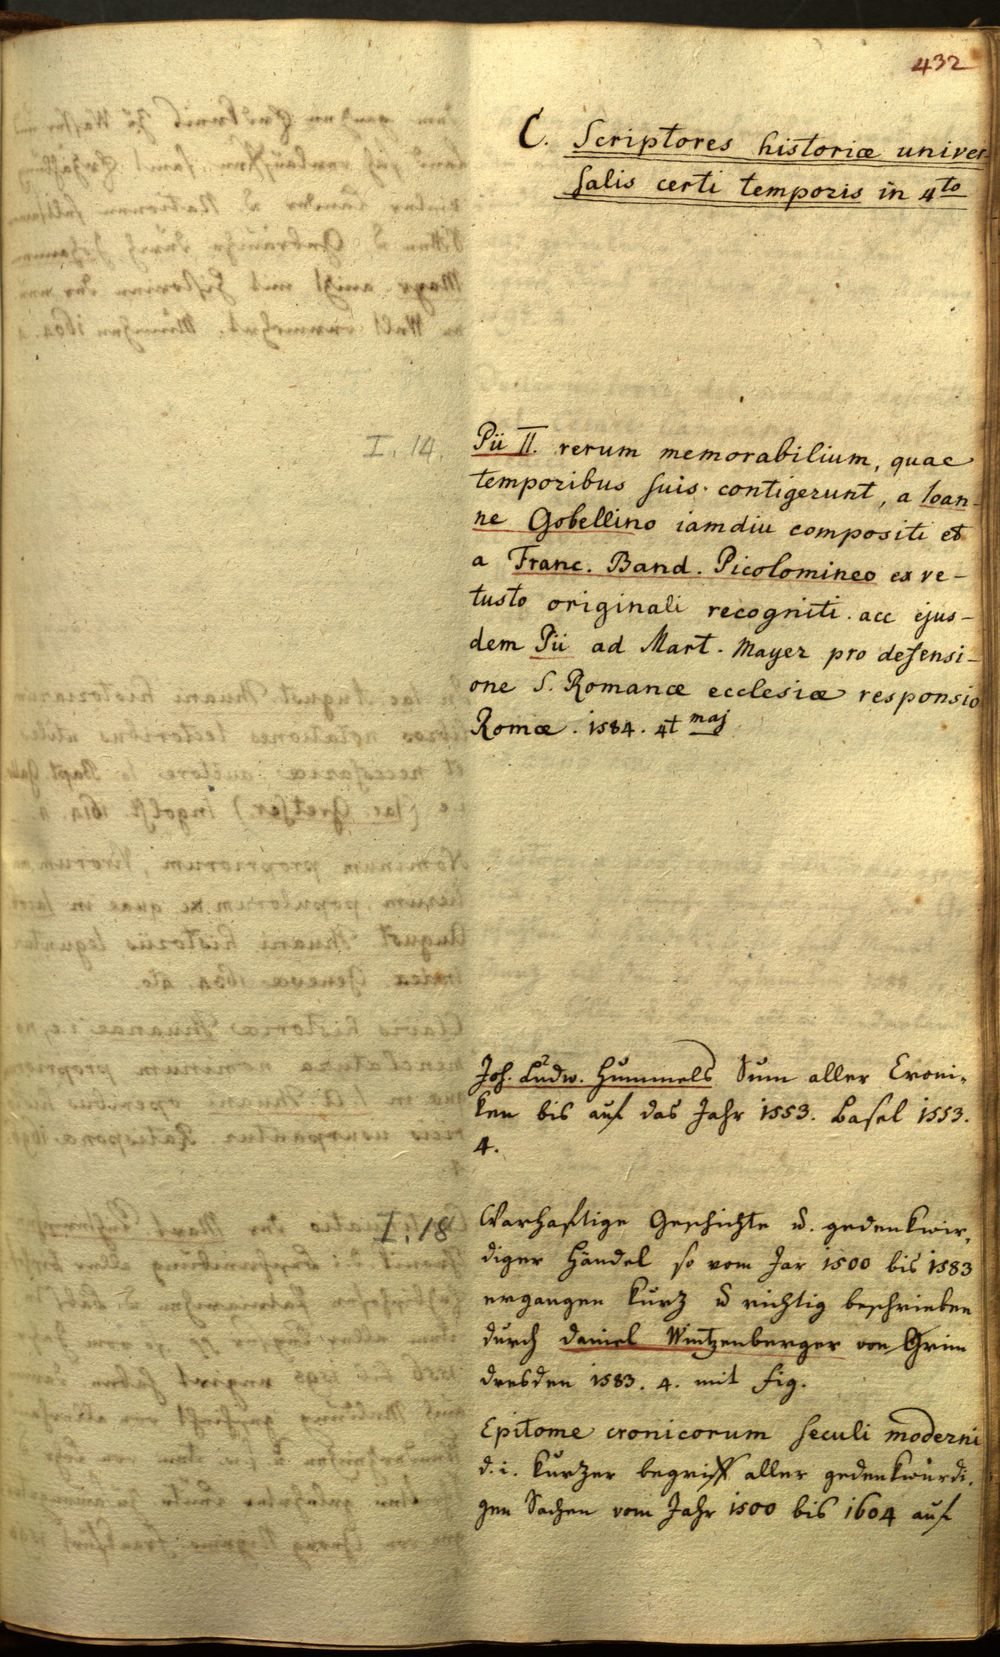 432
C. Scriptores historiæ univer
salis certi temporis in 4to
I. 14.
Pii II. rerum memorabilium, quae
temporibus suis contigerunt, a Ioan-
ne Gobellino iamdiu compositi et
a Franc. Band. Picolomineo ex ve-
tusto originali recogniti. acc ejus-
dem Pii ad Mart. Mayer pro defensi-
one S. Romanæ ecclesiæ responsio
Romæ. 1584. 4t maj
Joh. Ludw. Hummels Sum aller Croni-
ken bis auf das Jahr 1553. Basel 1553.
4.
I. 18
Warhaftige Geschichte u. gedenkwir-
diger Händel so vom Jar 1500 bis 1583
ergangen kurz u richtig beschrieben
durch Daniel Wintzenberger von Grim
Dresden 1583. 4. mit fig.
Epitome cronicorum seculi moderni
d. i. kurzer begriff aller gedenkwürdi-
gen Sachen vom Jahr 1500 bis 1604 auf